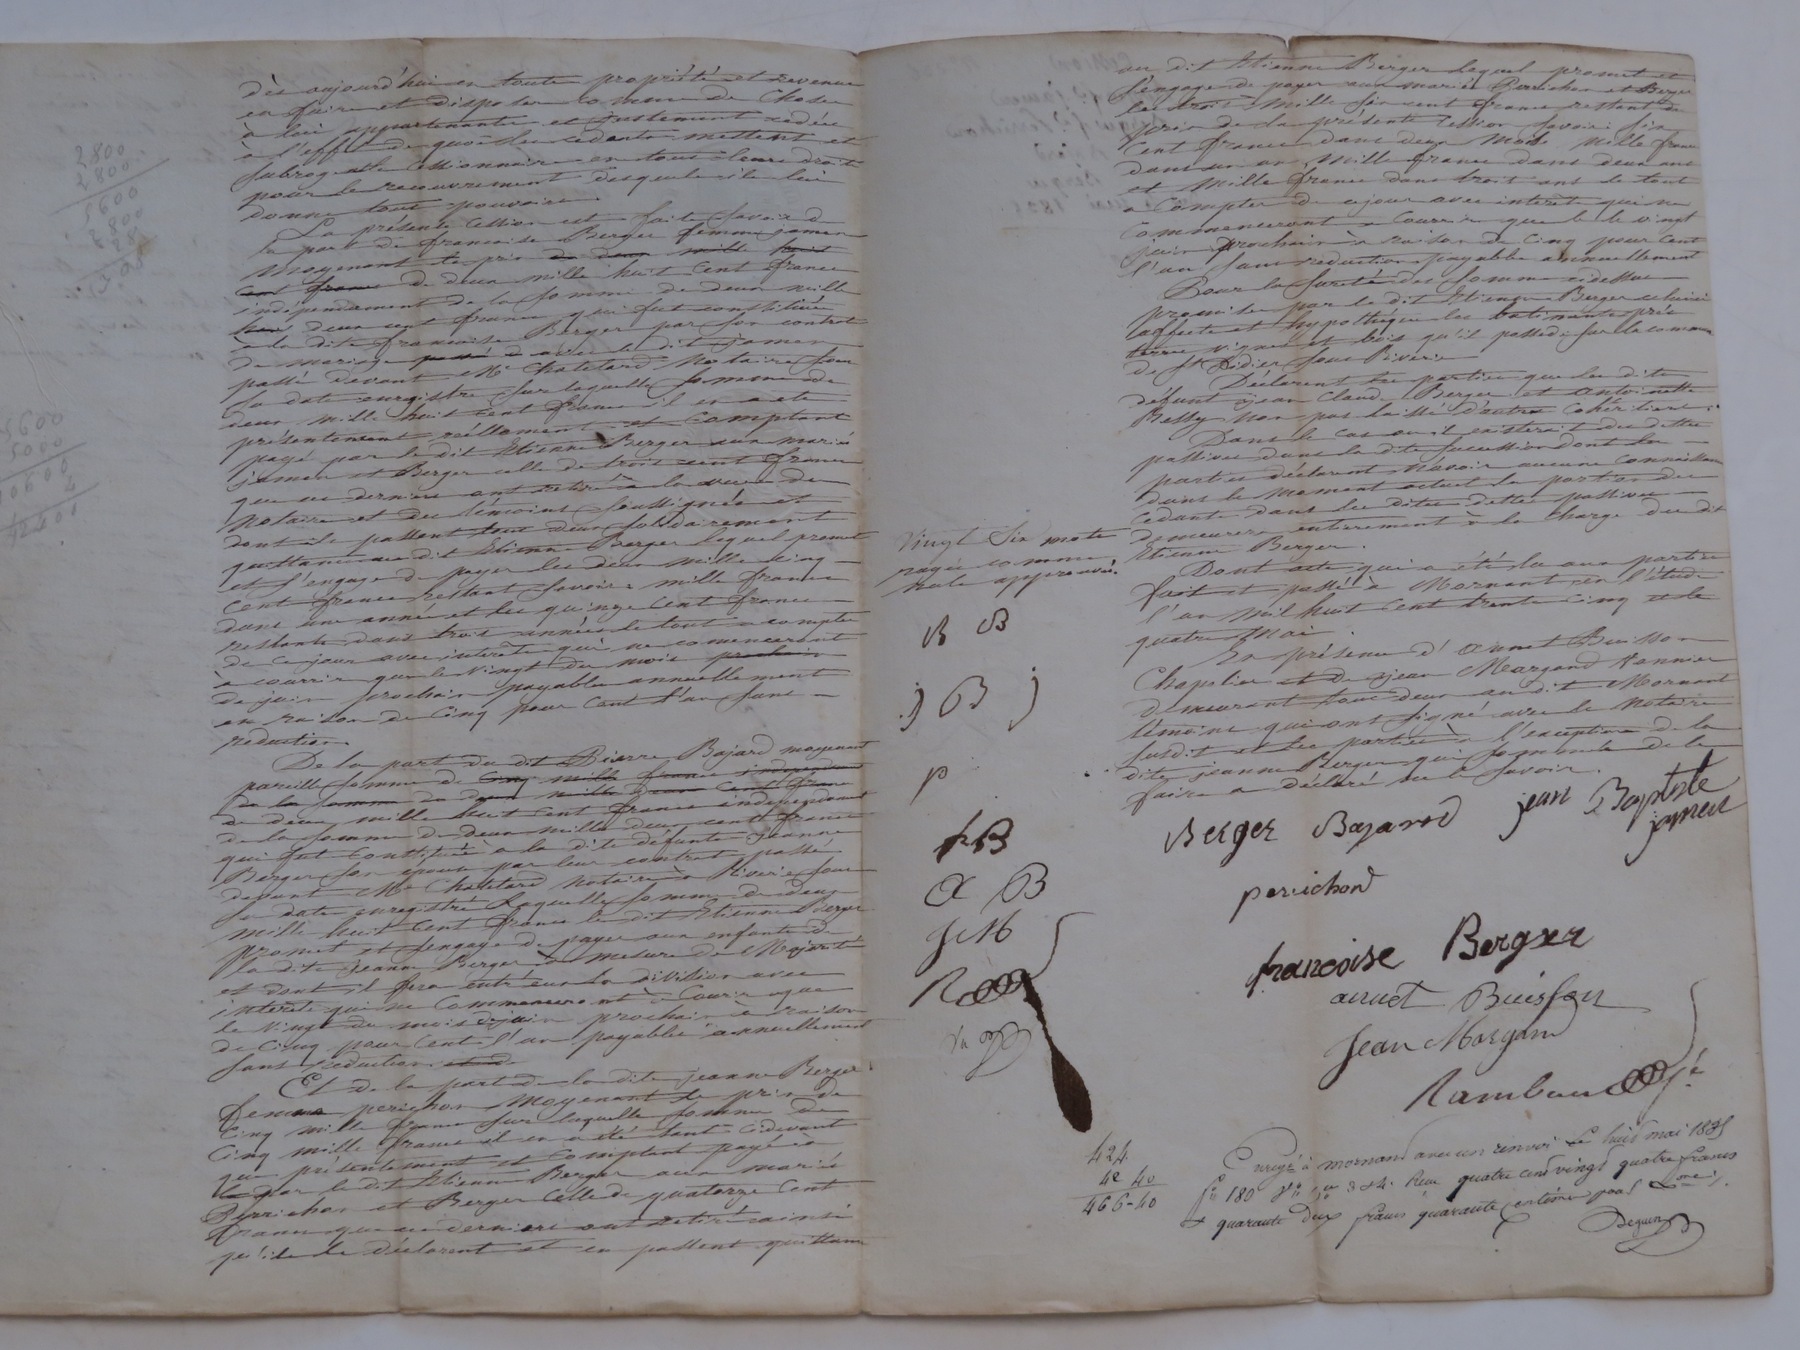 2800
2800
5600
dès aujourd'hui en toute propriété et revenu
en faire et disposer comme de chose
à lui appartenante et justement cédée
à l'effet de quoi les cédants mettent et
subrogent le cessionnaire en tous leurs droits
pour le recouvrement desquels ils lui
donne tout pouvoir.
La présente cession est faite savoir de
la part de francoise Berger femme jamen
moyenant le prix de deux mille huit
cent francs de deux mille huit cent francs
independament de la somme de deux mille
deux cent francs qui fut constituée
à la dite francoise Berger par son contrat
de mariage passé avec le dit jamen
passé devant Me Chatelard Notaire sous
sa date enregistré sur laquelle somme de
deux mille huit cent francs il en a été
présentement réellement et comptant
payé par le dit Etienne Berger aux mariés
jamen et Berger celle de trois cent francs
que ces derniers ont retiré à la vue du
Notaire et des témoins soussignés et
dont ils passent tous deux solidairement
quittance au dit Etienne Berger lequel promet
et s'engage de payer les deux mille cinq
cent francs restant savoir mille francs
dans une année et les quinze cent francs
restants dans trois années le tout a compter
de ce jour avec intérêts qui ne comenceront
à courrir que le vingt du mois prochain
de juin prochain payable annuellement
en raison de cinq pour cent l'an sans
reduction.
De la part du dit Pierre Bajard moyenant
pareille somme de cinq mille francs independant
de la somme de deux mille deux cent francs
de deux mille huit cent francs independament
de la somme de deux mille deux cent francs
qui fut constituée à la dite défunte jeanne
Berger son épouse par leur contrat passé
devant Me Chatelard notaire à Riverie sous
sa date enregistré Laquelle somme de deux
mille huit cent francs le dit Etienne Berger
promet et s'engage de payer aux enfants de
la dite jeanne Berger à mesure de Majorité
et dont il sera entré eux la division avec
intérêts qui ne commenceront à courir que
le vingt du mois de juin prochain à raison
de cinq pour cent l'an payable annuellement
sans reduction
Et de la part de la dite jeanne Berger
femme perichon moyenant le prix de
cinq mille francs sur laquelle somme de
cinq mille francs il en a été tant cidevant
que présentement et comptant payé
par le dit Etienne Berger aux mariés
Perrichon et Berger celle de quatorze cent
francs que ces derniers ont retiré ainsi
qu'ils le déclarent et en passent quittance
au dit Etienne Berger lequel promet et
s'engage de payer aux mariés Perrichon et Berger
les trois mille six cent francs restant du
prix de la présente cession savoir six
cent francs dans deux mois mille francs
dans un an mille francs dans deux ans
et mille francs dans trois ans le tout
a compter de ce jour avec interet qui ne
commenceront a courrir que le vingt
juin prochain à raison de cinq pour cent
l'an sans reduction payable annuellement
Pour la sureté des sommes cidessus
promises par le dit Etienne Berger celuici
affecte et hypothèque les batiments prés
terres vignes et bois qu'il possède sur la commune
de St Didier sous Riverie
Déclarent les parties que les dits
défunt jean Claude Berger et Antoinette
Bessy n'on pas laissé d'autre cohéritiers.
Dans le cas ou il existerait des dettes
passives dans la dite succession dont les
parties déclarent n'avoir aucune connaissance
dans le moment actuel la portion des
cedants dans les dites dettes passives
demeurera entierement à la charge du dit
Etienne Berger.
Dont acte qui a été lu aux parties
fait et passé à Mornant en l'étude
l'an mil huit cent trente cinq et le
quatre mai.
En présence d'annet Buisson
Chapelier et de jean Margand tonnier
demeurant tous deux au dit Mornant
témoins qui ont signé avec le Notaire
susdit et les parties à l'exception de la
dite jeanne Berger qui sommée de le
faire a déclaré ne le savoir.
Vingt Six mots
rayés comme
nuls approuvés.
B B
j B j
p
f B
A B
J M
R
Berger Bajard jean Baptiste
jamen
perrichond
francoise Berger
annet Buisson
Jean Margand
Rambaud
424
42 40
466-40
Enregé à mornant avec un renvoi Le huit mai 1835
fo 180 Reçu quatre cent vingt quatre francs
et quarante deux francs quarante centimes pour
Dequin